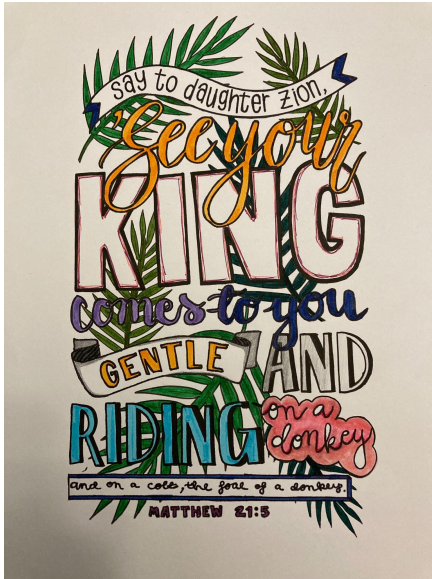 say to daughter zion,
'See your
KING
comes to you
GENTLE AND
RIDING on a donkey
and on a colt, the foal of a donkey.'
MATTHEW 21:5